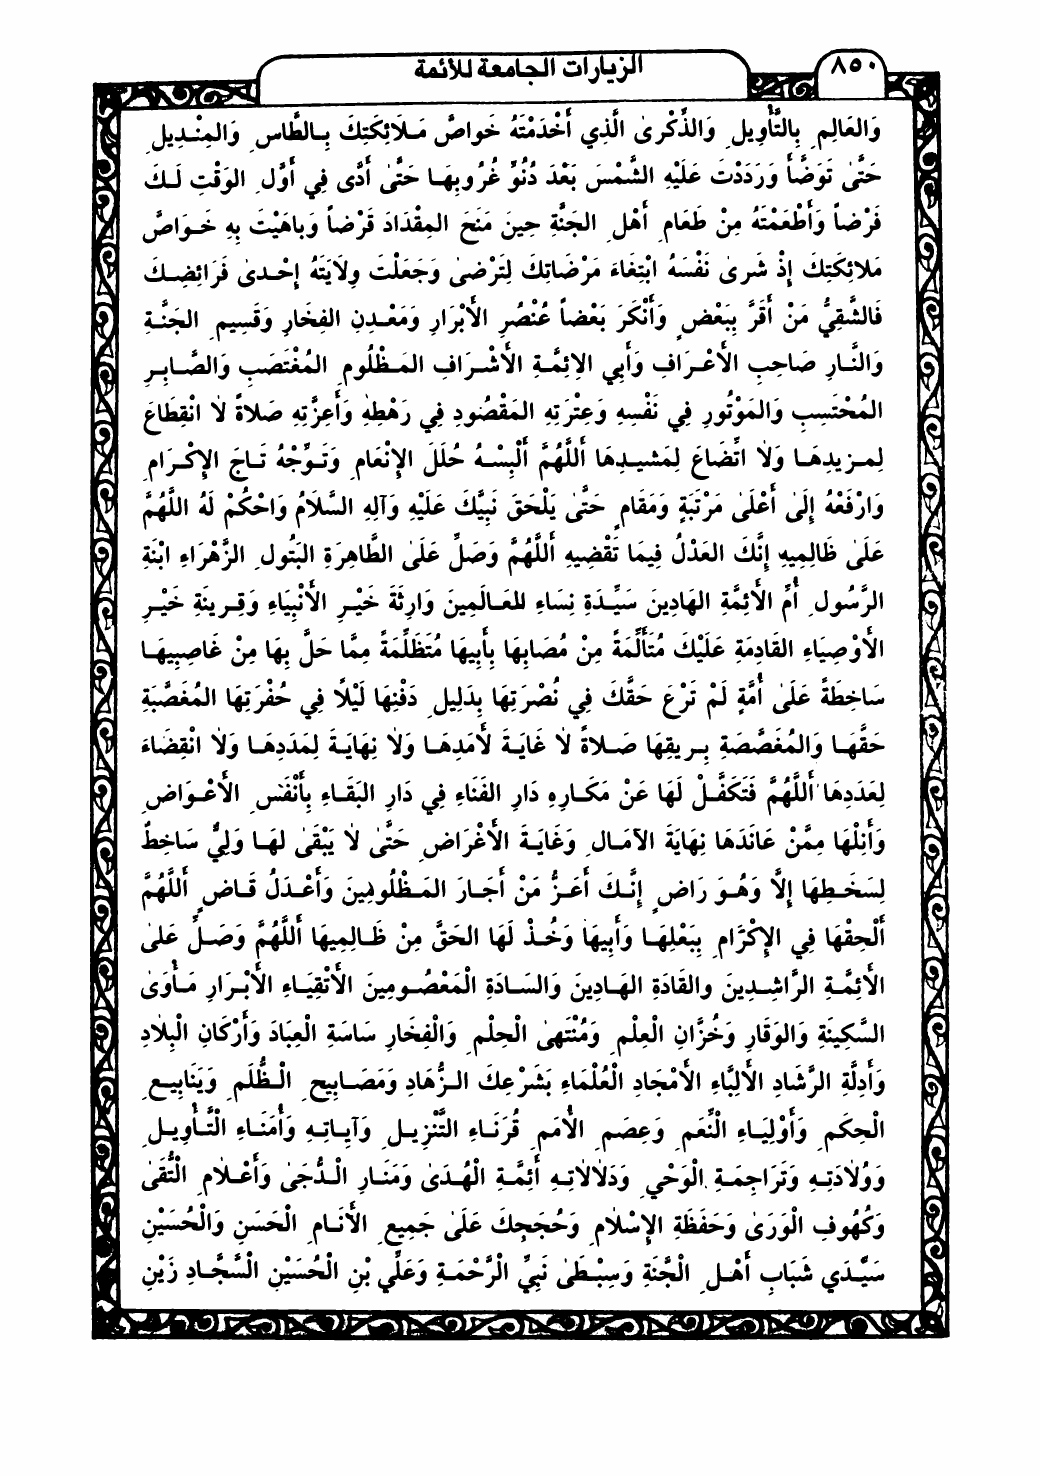 ٨٥٠
الزيارات الجامعة للأئمة
وَالعَالِمِ بِالتَّأْوِيلِ وَالذِّكْرىٰ الَّذِي أَخْدَمْتَهُ خَواصَّ مَـلَائِكَتِكَ بِـالطَّاسِ وَالمِنْـدِيلِ
حَتَّىٰ تَوَضَّأَ وَرَدَدْتَ عَلَيْهِ الشَّمْسَ بَعْدَ دُنُوِّ غُرُوبِهَـا حَتَّىٰ أَدَّى فِي أَوَّلِ الوَقْتِ لَـكَ
فَرْضاً وَأَطْعَمْتَهُ مِنْ طَعَامِ أَهْلِ الجَنَّةِ حِينَ مَنَحَ المِقْدَادَ قَرْضاً وَبـاهَيْتَ بِهِ خَـوَاصَّ
مَلَائِكَتِكَ إِذْ شَرىٰ نَفْسَهُ ابْتِغَاءَ مَرْضَاتِكَ لِتَرْضىٰ وَجَعَلْتَ وِلَايَتَهُ إِحْـدىٰ فَرَائِضِـكَ
فَالشَّقِيُّ مَنْ أَقَرَّ بِبَعْضٍ وَأَنْكَرَ بَعْضاً عُنْصُرِ الأَبْرَارِ وَمَعْـدِنِ الفِخَارِ وَقَسِيمِ الجَنَّـةِ
وَالنَّـارِ صَاحِبِ الأَعْـرَافِ وَأَبِي الأَئِمَّـةِ الأَشْـرَافِ المَـظْلُومِ المُغْتَصَبِ وَالصَّـابِـرِ
المُحْتَسِبِ وَالمَوْتُورِ فِي نَفْسِهِ وَعِتْرَتِهِ المَقْصُودِ فِي رَهْطِهِ وَأَعِزَّتِهِ صَلاةً لاٰ انْقِطَاعَ
لِمـزيدِهَـا وَلاٰ اتِّضَاعَ لِمَشيـدِهَا أَللَّهُمَّ أَلْبِسْـهُ حُلَلَ الإِنْعَامِ وَتَـوِّجْهُ تَـاجَ الإِكْـرَامِ
وَارْفَعْهُ إِلَىٰ أَعْلَىٰ مَرْتَبَةٍ وَمَقَامٍ حَتَّىٰ يَلْحَقَ نَبِيَّكَ عَلَيْهِ وَآلِهِ السَّلاَمُ وَاحْكُمْ لَهُ اللَّهُمَّ
عَلَىٰ ظَالِمِيهِ إِنَّكَ العَدْلُ فِيمَا تَقْضِيهِ أَللَّهُمَّ وَصَلِّ عَلَىٰ الطَّاهِرَةِ البَتُولِ الزَّهْرَاءِ ابْنَةِ
الرَّسُولِ أُمِّ الأَئِمَّةِ الهَادِينَ سَيِّـدَةِ نِسَاءِ للعَـالَمِينَ وَارِثَةَ خَيْـرِ الأَنْبِيَاءِ وَقَـرِينَةِ خَيْـرِ
الأَوْصِيَاءِ القَادِمَةِ عَلَيْكَ مُتَأَلِّمَةً مِنْ مُصَابِهَا بِأَبِيهَا مُتَظَلِّمَةً مِمَّا حَلَّ بِهَا مِنْ غَاصِبِيهَـا
سَـاخِطَةً عَلَىٰ أُمَّةٍ لَمْ تَرْعَ حَقَّكَ فِي نُصْرَتِهَا بِدَلِيلِ دَفْنِهَا لَيْلاً فِي حُفْرَتِهَا المُغَصَّبَةِ
حَقَّهَـا وَالمُغَصَّصَةِ بِـرِيقِهَا صَـلاةً لاٰ غَايَـةَ لأَمَدِهَـا وَلاٰ نِهَايَـةَ لِمَدَدِهَـا وَلاٰ انْقِضَاءَ
لِعَدَدِهَا أَللَّهُمَّ فَتَكَفَّـلْ لَهَا عَنْ مَكَـارِهِ دَارِ الفَنَاءِ فِي دَارِ البَقَـاءِ بِأَنْفَسِ الأَعْـوَاضِ
وَأَنِلْهَا مِمَّنْ عَانَدَهَا نِهَايَةَ الآمَـالِ وَغَايَـةَ الأَغْرَاضِ حَتَّىٰ لاٰ يَبْقَىٰ لهَـا وَلِيٌّ سَاخِطٌ
لِسَخَـطِهَا إِلَّا وَهُـوَ رَاضٍ إِنَّـكَ أَعَـزُّ مَنْ أَجَـارَ المَـظْلُومِينَ وَأَعْـدَلُ قَـاضٍ أَللَّهُمَّ
أَلْحِقْهَا فِي الإِكْرَامِ بِبَعْلِهَـا وَأَبِيهَا وَخُـذْ لَهَا الحَقَّ مِنْ ظَـالِمِيهَا أَللَّهُمَّ وَصَـلِّ عَلىٰ
الأَئِمَّـةِ الرَّاشِـدِينَ والقَادَةِ الهَـادِينَ وَالسَـادَةِ الْمَعْصُـومِينَ الأَتْقِيَـاءِ الأَبْـرَارِ مَـأْوَىٰ
السَّكِينَةِ وَالوَقَارِ وَخُزَّانِ الْعِلْمِ وَمُنْتَهىٰ الْحِلْمِ وَالْفِخَارِ سَاسَةِ الْعِبَادَ وَأَرْكَانِ الْبِلَادِ
وَأَدِلَّةِ الرَّشَادِ الأَلِبَّاءِ الأَمْجَادِ الْعُلَمَاءِ بَشَرْعِكَ الـزُّهَادِ وَمَصَـابِيحِ الْـظُّلَمِ وَيَنَابِيـعِ
الْحِكَمِ وَأَوْلِيَـاءِ الْنَّعَمِ وَعِصَمِ الأُمَمِ قُرَنَـاءِ التَّنْزِيـلِ وَآيـاتِـهِ وَأُمَنَـاءِ الْتَّـأْوِيـلِ
وَوُلَادَتِـهِ وَتَرَاجِمَـةِ الْوَحْيِ وَدَلَالَاتِـهِ أَئِمَّـةِ الْهُـدَىٰ وَمَنَـارِ الْـدُّجَىٰ وَأَعْـلَامِ الْتُّقَىٰ
وَكُهُوفِ الْوَرَىٰ وَحَفَظَةِ الإِسْلَامِ وَحُجَجِكَ عَلَىٰ جَمِيعِ الأَنَـامِ الْحَسَنِ وَالْحُسَيْنِ
سَيِّدَي شَبَابِ أَهْـلِ الْجَنَّةِ وَسِبْطَىٰ نَبِيِّ الْرَّحْمَـةِ وَعَلِّي بْنِ الْحُسَيْنِ الْسَّجَّـادِ زَيْنِ